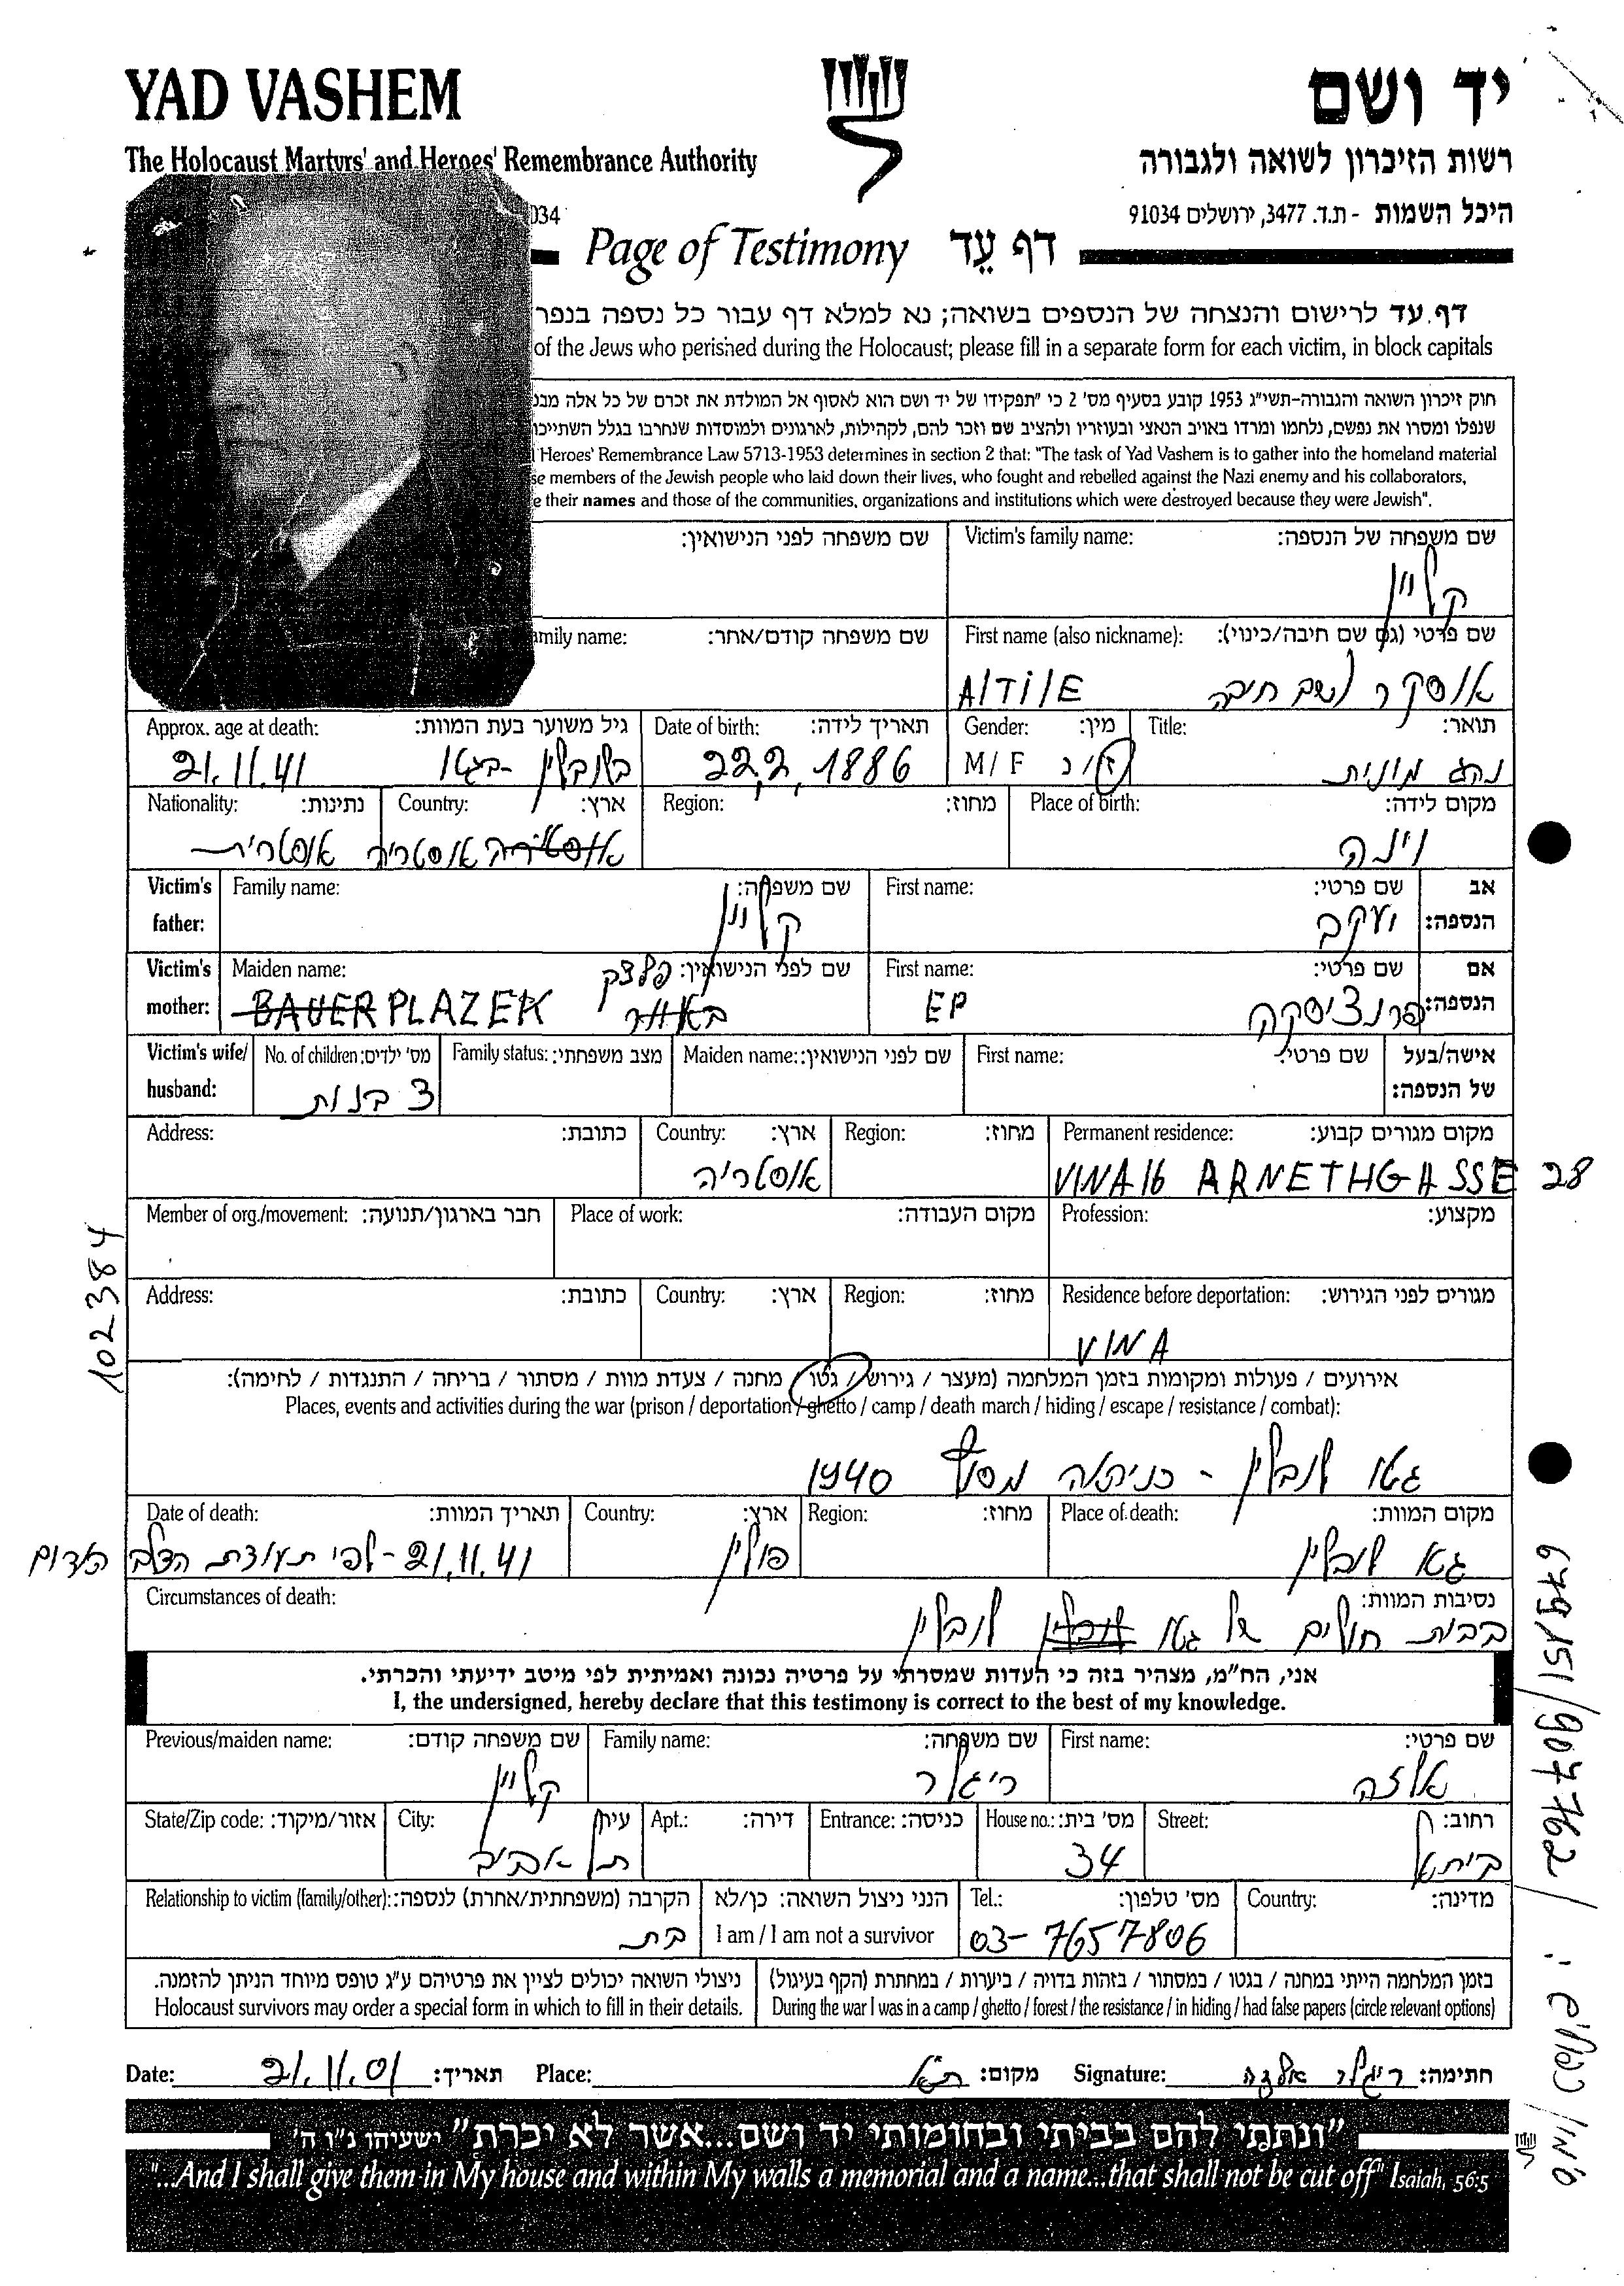 YAD VASHEM
יד ושם
The Holocaust Martyrs' and Heroes' Remembrance Authority
רשות הזיכרון לשואה ולגבורה
034
היכל השמות - ת.ד. 3477, ירושלים 91034
Page of Testimony דף עֵד
דף עד לרישום והנצחה של הנספים בשואה; נא למלא דף עבור כל נספה בנפר
of the Jews who perished during the Holocaust; please fill in a separate form for each victim, in block capitals
חוק זיכרון השואה והגבורה-תשי"ג 1953 קובע בסעיף מס' 2 כי "תפקידו של יד ושם הוא לאסוף אל המולדת את זכרם של כל אלה מבנ
שנפלו ומסרו את נפשם, נלחמו ומרדו באויב הנאצי ובעוזריו ולהציב שם וזכר להם, לקהילות, לארגונים ולמוסדות שנחרבו בגלל השתייכו
Heroes' Remembrance Law 5713-1953 determines in section 2 that: "The task of Yad Vashem is to gather into the homeland material
se members of the Jewish people who laid down their lives, who fought and rebelled against the Nazi enemy and his collaborators,
e their names and those of the communities, organizations and institutions which were destroyed because they were Jewish".
שם משפחה לפני הנישואין: Victim's family name: שם משפחה של הנספה:
קליין
amily name: שם משפחה קודם/אחר: First name (also nickname): שם פרטי (גם שם חיבה/כינוי):
אוסקר ושם חיבה AlTilE
Approx. age at death: גיל משוער בעת המוות: Date of birth: תאריך לידה: Gender: מין: Title: תואר:
21.11.41 בלובלין -בגטו 22,2,1886 M / F ז/נ נהג מונית
Nationality: נתינות: Country: ארץ: Region: מחוז: Place of birth: מקום לידה:
אוסטרית אוסטריה וינה
Victim's father: Family name: שם משפחה: First name: שם פרטי: אב הנספה:
קליין יעקב
Victim's mother: Maiden name: שם לפני הנישואין: First name: שם פרטי: אם הנספה:
BAUER PLAZEK פלצק באואר EP פרנציסקה
Victim's wife/ husband: No. of children: מס' ילדים: Family status: מצב משפחתי: Maiden name: שם לפני הנישואין: First name: שם פרטי: אישה/בעל של הנספה:
3 בנות
Address: כתובת: Country: ארץ: Region: מחוז: Permanent residence: מקום מגורים קבוע:
אוסטריה VINA 16 ARNETHGASSE 28
Member of org./movement: חבר בארגון/תנועה: Place of work: מקום העבודה: Profession: מקצוע:
102384
Address: כתובת: Country: ארץ: Region: מחוז: Residence before deportation: מגורים לפני הגירוש:
VINA
אירועים / פעולות ומקומות בזמן המלחמה (מעצר / גירוש / גטו / מחנה / צעדת מוות / מסתור / בריחה / התנגדות / לחימה):
Places, events and activities during the war (prison / deportation / ghetto / camp / death march / hiding / escape / resistance / combat):
גטו לובלין - 1940
Date of death: תאריך המוות: Country: ארץ: Region: מחוז: Place of death: מקום המוות:
21.11.41 - לפי תעודת הצלב האדום פולין גטו לובלין
Circumstances of death: נסיבות המוות:
בבית חולים של גטו לובלין לובלין
אני, הח"מ, מצהיר בזה כי העדות שמסרתי על פרטיה נכונה ואמיתית לפי מיטב ידיעתי והכרתי.
I, the undersigned, hereby declare that this testimony is correct to the best of my knowledge.
Previous/maiden name: שם משפחה קודם: Family name: שם משפחה: First name: שם פרטי:
קליין ריגלר אלזה
State/Zip code: אזור/מיקוד: City: עיר: Apt.: דירה: Entrance: כניסה: House no.: מס' בית: Street: רחוב:
תל אביב 34
Relationship to victim (family/other): הקרבה (משפחתית/אחרת) לנספה: הנני ניצול השואה: כן/לא Tel.: מס' טלפון: Country: מדינה:
בת I am / I am not a survivor 03-7657806
ניצולי השואה יכולים לציין את פרטיהם ע"ג טופס מיוחד הניתן להזמנה. בזמן המלחמה הייתי במחנה / בגטו / במסתור / בזהות בדויה / ביערות / במחתרת (הקף בעיגול)
Holocaust survivors may order a special form in which to fill in their details. During the war I was in a camp / ghetto / forest / the resistance / in hiding / had false papers (circle relevant options)
Date: 21.11.01 תאריך: Place: ת"א מקום: Signature: ריגלר אלזה חתימה:
"ונתתי להם בביתי ובחומותי יד ושם...אשר לא יכרת" ישעיהו נ"ו ה'
"...And I shall give them in My house and within My walls a memorial and a name...that shall not be cut off" Isaiah, 56:5